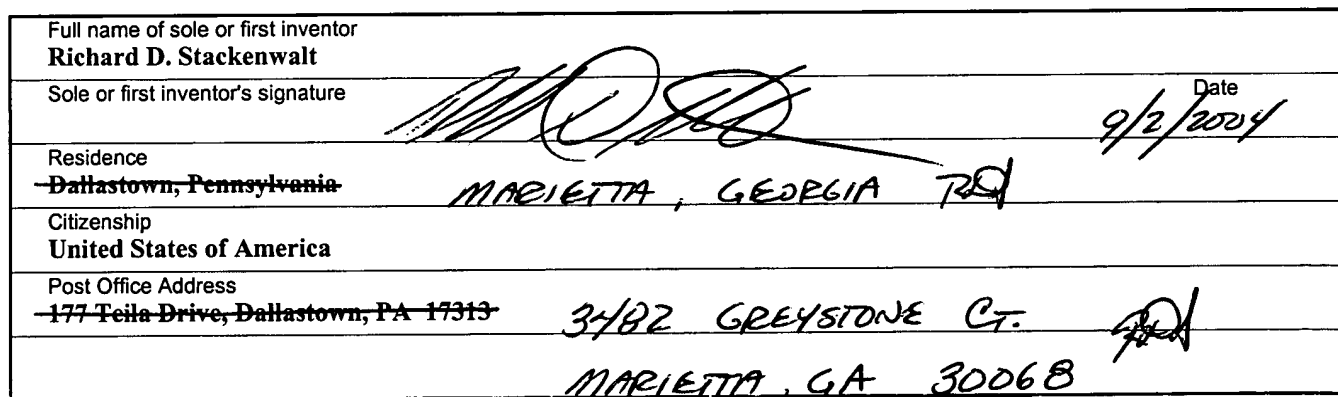 Full name of sole or first inventor
Richard D. Stackenwalt
Sole or first inventor's signature
Date
9/2/2004
Residence
Dallastown, Pennsylvania MARIETTA, GEORGIA
Citizenship
United States of America
Post Office Address
177 Teila Drive, Dallastown, PA 17313 3482 GREYSTONE CT.
MARIETTA, GA 30068